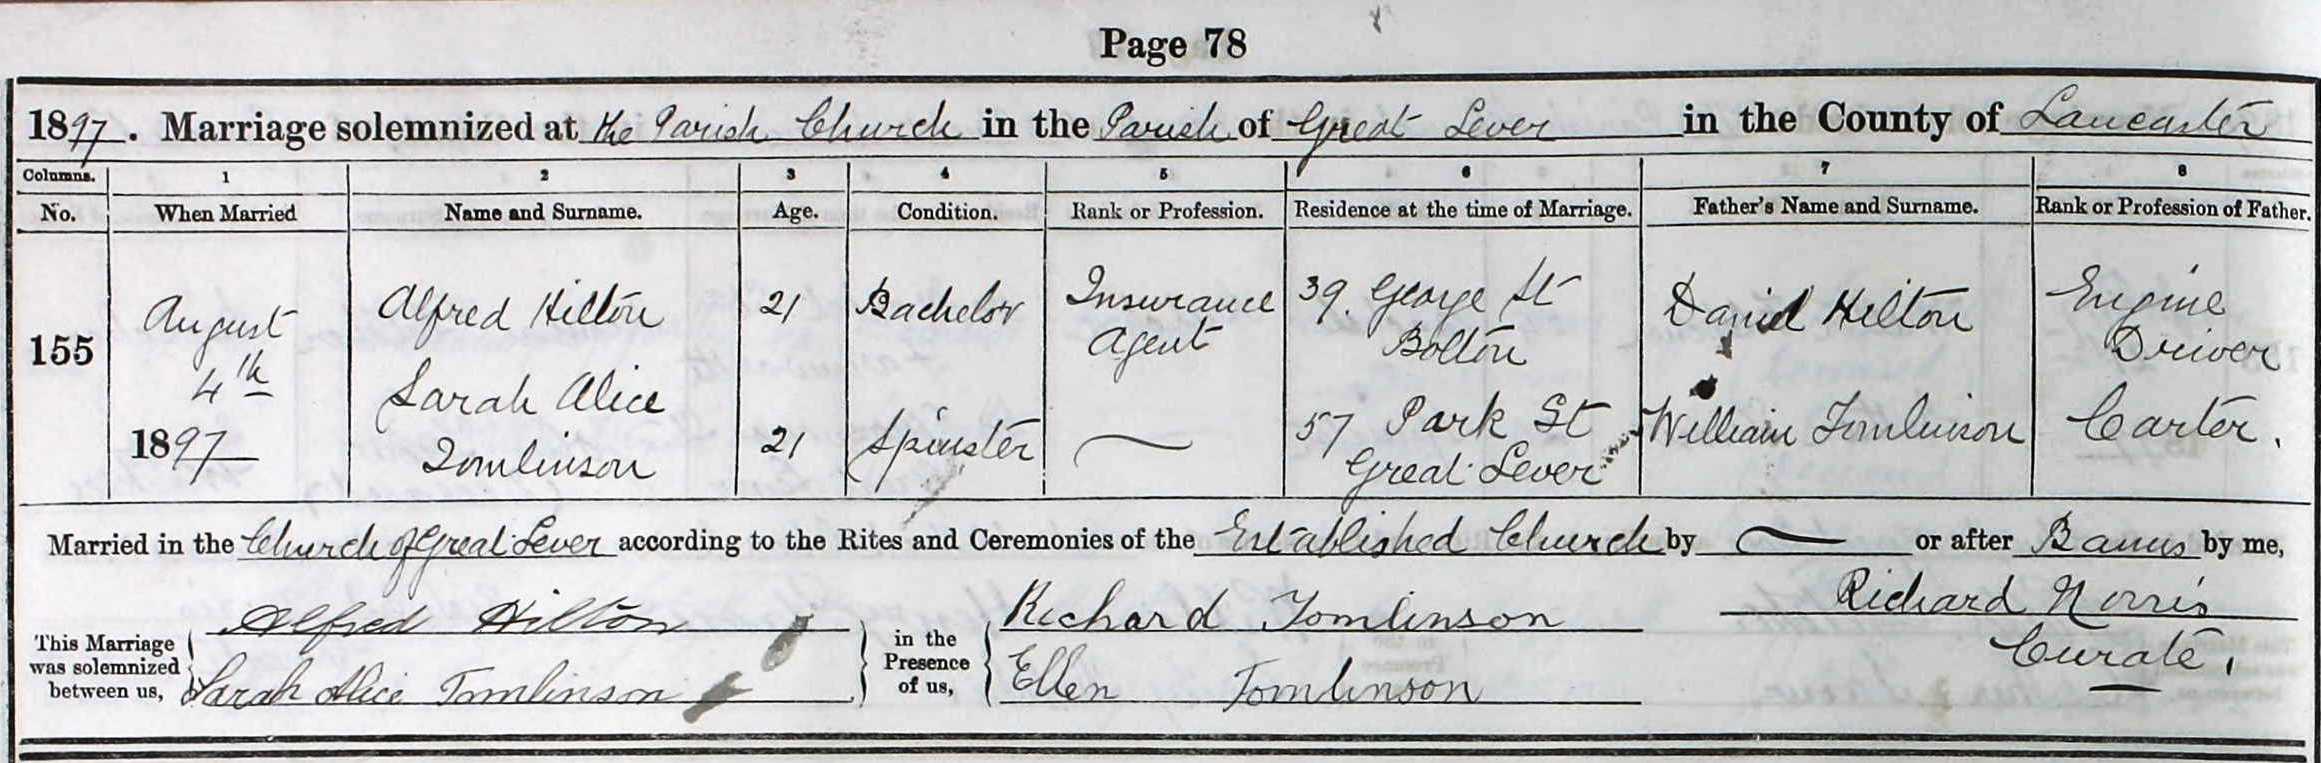 Page 78
1897. Marriage solemnized at the Parish Church in the Parish of Great Lever in the County of Lancaster
Columns. 1 2 3 4 5 6 7 8
No. When Married Name and Surname. Age. Condition. Rank or Profession. Residence at the time of Marriage. Father's Name and Surname. Rank or Profession of Father.
155
August
4th
1897
Alfred Hilton
21
Bachelor
Insurance
Agent
39. George St
Bolton
David Hilton
Engine
Driver
Sarah Alice
Tomlinson
21
Spinster
57 Park St
Great Lever
William Tomlinson
Carter.
Married in the Church of Great Lever according to the Rites and Ceremonies of the Established Church by — or after Banns by me,
This Marriage
was solemnized
between us,
Alfred Hilton
Sarah Alice Tomlinson
in the
Presence
of us,
Richard Tomlinson
Ellen Tomlinson
Richard Norris
Curate.